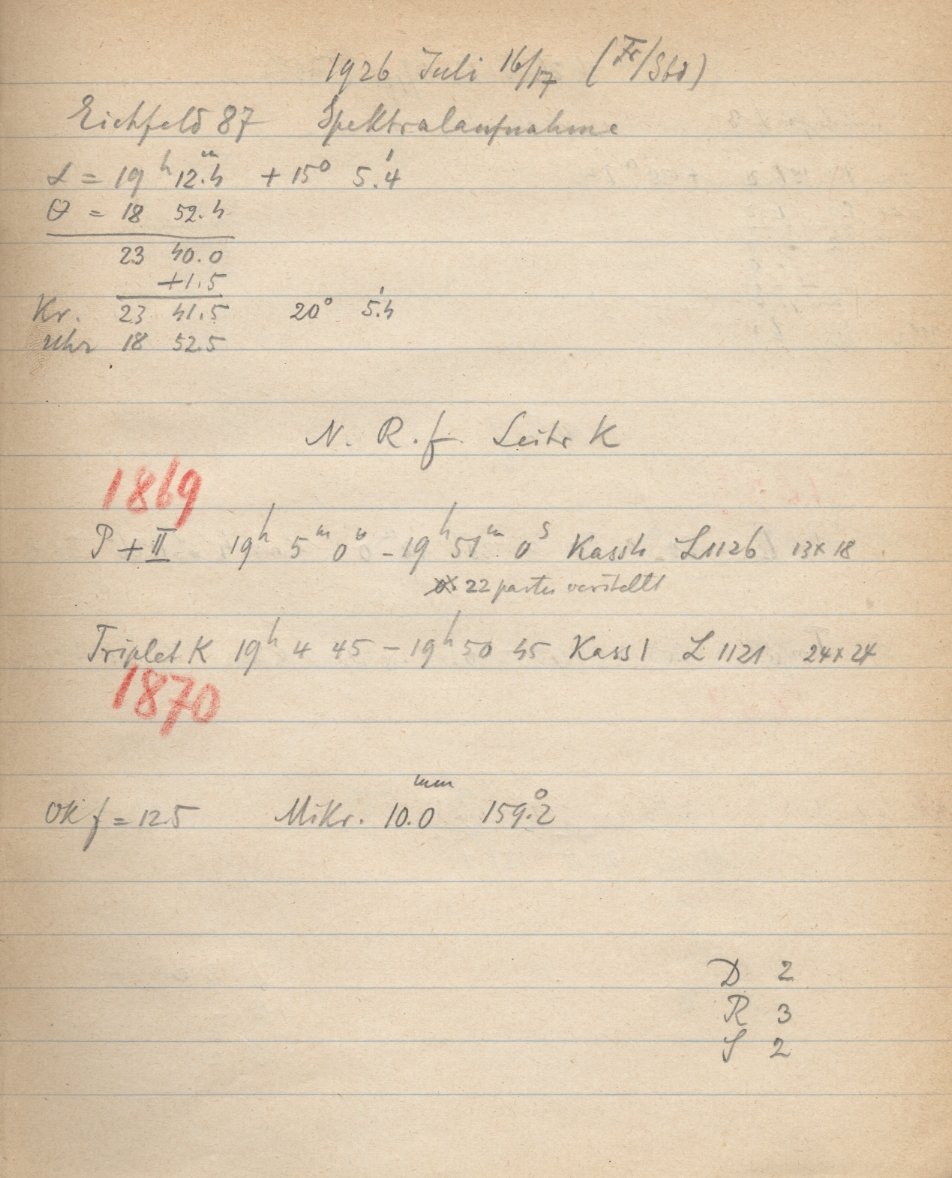 1926 Juli 16/17 (Fr/Sbd)
Eichfeld 87 Spektralaufnahme
α = 19h 12.m4 + 15° 5.'4
θ = 18 52.4
23 40.0
+1.5
Kr. 23 41.5 20° 5.'4
Uhr 18 52.5
N. R. f. Leitr K
1869
P + II 19h 5m 0s - 19h 51m 0s Kass4 L1126 13x18
22 partes verstellt
Triplet K 19h 4 45 - 19h 50 45 Kass1 L1121 24x24
1870
OK f = 12.5 Mikr. 10.0mm 159.°2
D 2
R 3
S 2